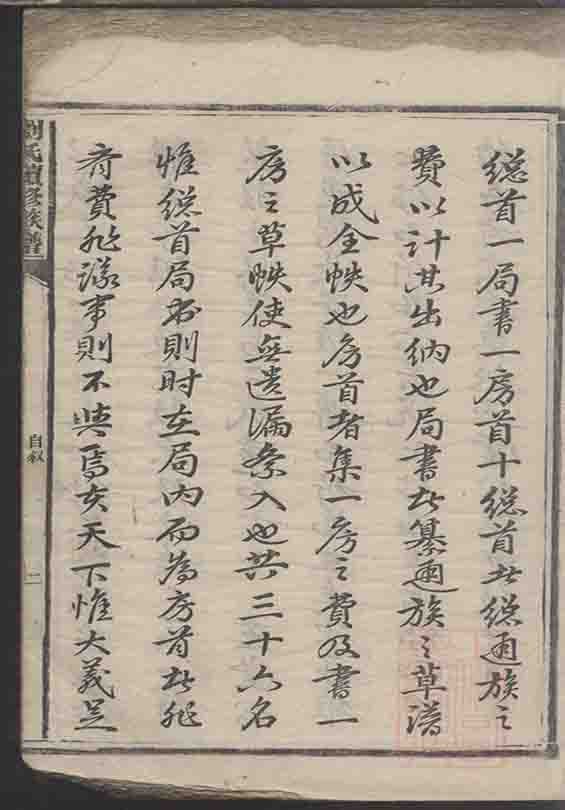 緫首一局書一房首十緫首者緫通族之
費以計其出納也局書者纂通族之草譜
以成全帙也房首者集一房之費及書一
房之草帙使無遺漏紊入也共三十六名
惟緫首局書則時在局内而為房首者非
有費非議事則不與焉夫天下惟大義足
劉氏續修族譜
自叙
二